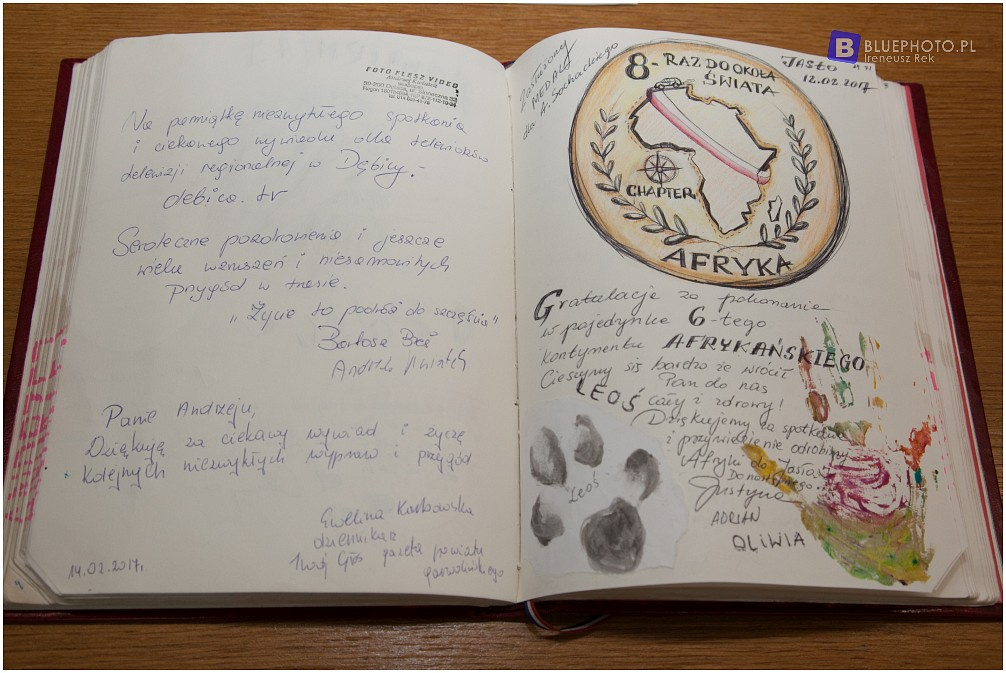 FOTO FLESZ VIDEO
Na pamiątkę niezwykłego spotkania
i ciekawego wywiadu dla telewidzów
telewizji regionalnej w Dębicy.-
debica.tv
Serdeczne pozdrowienia i jeszcze
wielu wzruszeń i niesamowitych
przygód w trasie.
"Życie to podróż do szczęścia"
Barbara
Panie Andrzeju,
Dziękuję za ciekawy wywiad i życzę
kolejnych niezwykłych wypraw i przygód
Ewelina
dziennikarz
Twój Głos gazeta powiatu
garwolińskiego
14.02.2017r.
BLUEPHOTO.PL
Ireneusz Rek
JASŁO
12.02.2017
Zasłużony
MEDAL!
dla A. Sochackiego
8-RAZ DOOKOŁA
ŚWIATA
CHAPTER
AFRYKA
Gratulacje za pokonanie
w pojedynkę 6-tego
kontynentu AFRYKAŃSKIEGO
Cieszymy się bardzo że wrócił
Pan do nas
cały i zdrowy!
LEOŚ
Dziękujemy za spotkanie
i przywiezienie odrobiny
Afryki do Jasła
Do następnego.
Justyna
ADRIAN
OLIWIA
Leoś